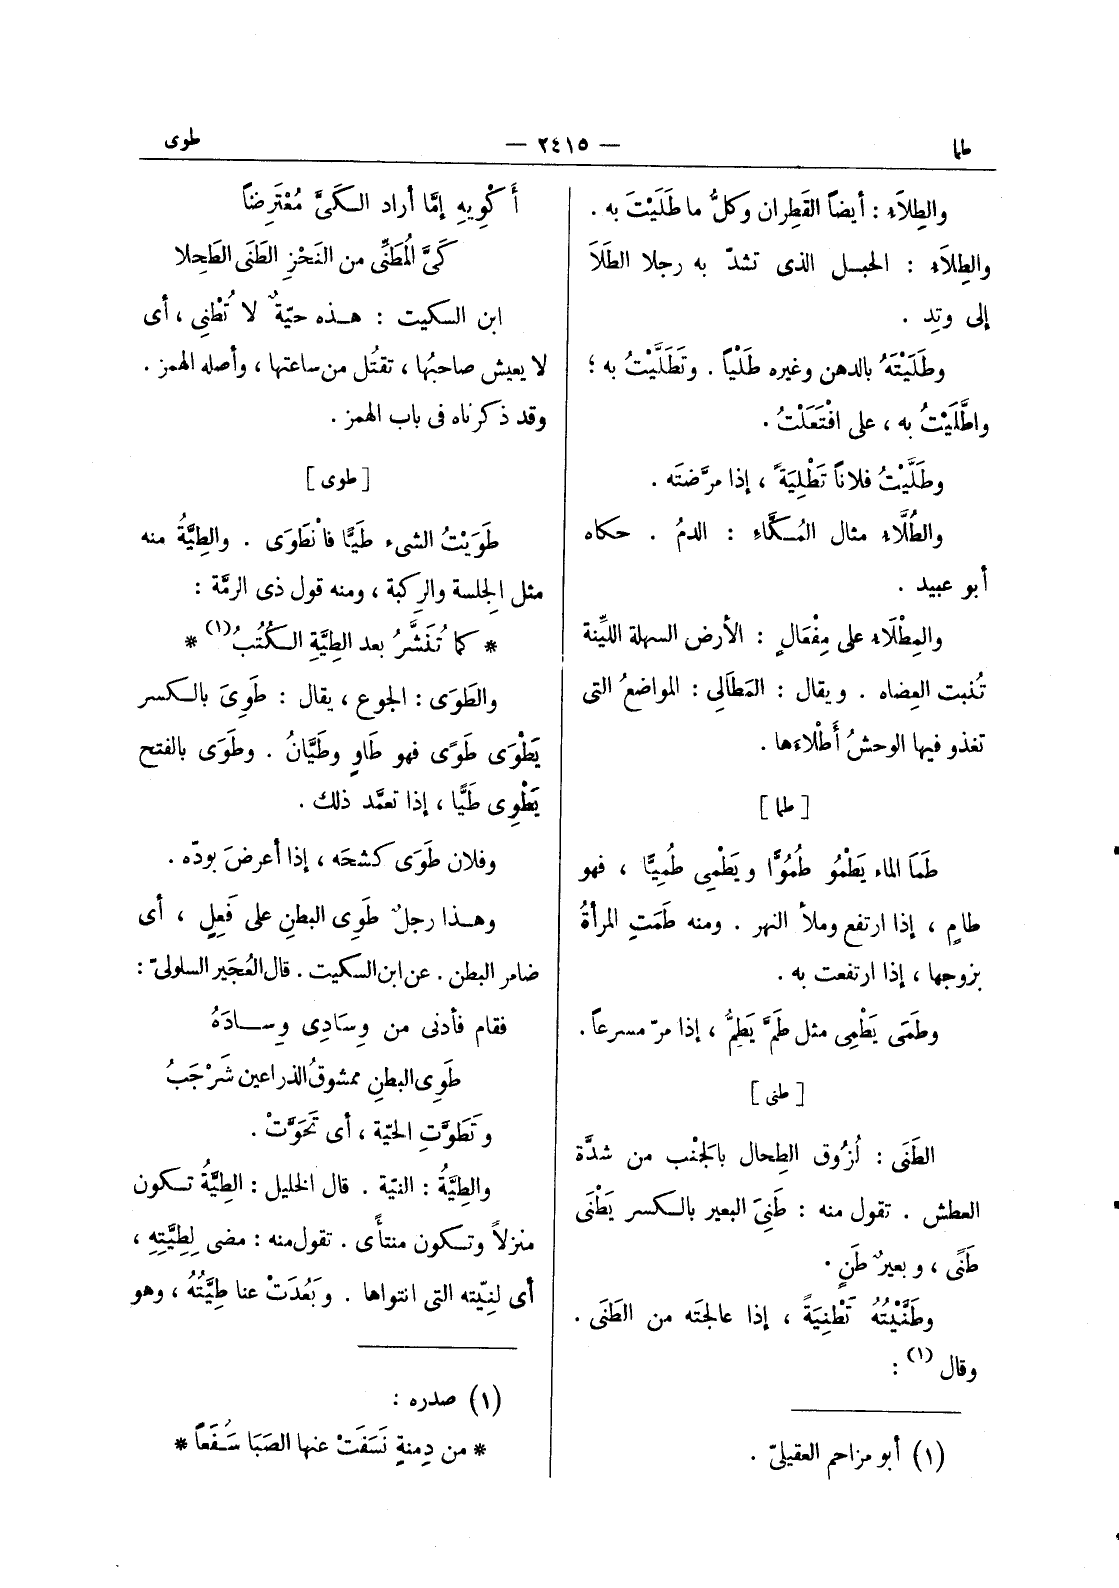 طما
— ٢٤١٥ —
طوى
والطِلَاء : أيضاً القَطِران وكلُّ ما طَلَيْتَ به .
والطِلَاء : الحبل الذى تشدّ به رجلا الطَلَا
إلى وتِد .
وطَلَيْتَهُ بالدهن وغيره طَلْياً . وتَطَلَّيْتُ به ؛
واطَّلَيْتُ به ، على افْتَعَلْتُ .
وطَلَّيْتُ فلاناً تَطْلِيَةً ، إذا مرَّضتَه .
والطُلَّاء مثال المُكَّاءِ : الدمُ . حكاه
أبو عبيد .
والمِطْلَاء على مِفْعَالٍ : الأرض السهلة الليِّنة
تُنبت العِضاه . ويقال : المَطَالِى : المواضعُ التى
تغذو فيها الوحشُ أَطْلاءها .
[ طما ]
طَمَا الماء يَطْمُو طُمُوًّا ويَطْمِى طُمِيًّا ، فهو
طامٍ ، إذا ارتفع وملأ النهر . ومنه طَمَتِ المرأةُ
بزوجها ، إذا ارتفعت به .
وطَمَى يَطْمِى مثل طَمَّ يَطِمُّ ، إذا مرّ مسرعاً .
[ طنى ]
الطَنَى : لُزُوق الطِحال بالجَنْب من شدَّة
العطش . تقول منه : طَنِىَ البعير بالكسر يَطْنَى
طَنًى ، وبعيرٌ طَنٍ .
وطَنَّيْتُهُ تَطْنِيَةً ، إذا عالجتَه من الطَنَى .
وقال (١) :
(١) أبو مزاحم العقيلىّ .
أَكْوِيهِ إمَّا أراد الكَىَّ مُعْتَرِضاً
كَىَّ المُطَنِّى من النَحْزِ الطَنَى الطَحِلا
ابن السكيت : هذه حيّةٌ لا تُطْنِى ، أى
لا يعيش صاحبُها ، تقتُل من ساعتها ، وأصله الهمز .
وقد ذكرناه فى باب الهمز .
[ طوى ]
طَوَيْتُ الشىء طَيًّا فانْطَوَى . والطِيَّةُ منه
مثل الجِلسة والرِكبة ، ومنه قول ذى الرمّة :
* كما تُنَشَّرُ بعد الطِيَّةِ الكُتُبُ (١) *
والطَوَى : الجوع ، يقال : طَوِىَ بالكسر
يَطْوَى طَوًى فهو طَاوٍ وطَيَّانُ . وطَوَى بالفتح
يَطْوِى طَيًّا ، إذا تعمَّد ذلك .
وفلان طَوَى كشحَه ، إذا أعرضَ بودّه .
وهذا رجلٌ طَوِى البطنِ على فَعِلٍ ، أى
ضامر البطن . عن ابن السكيت . قال العُجَير السلولىّ :
فقام فأدنى من وِسَادِى وِسادَهُ
طَوِى البطنِ ممشوقُ الذراعين شَرْجَبُ
وتَطَوَّتِ الحيّة ، أى تَحَوَّتْ .
والطِيَّةُ : النيّة . قال الخليل : الطِيَّةُ تكون
منزلاً وتكون منتأًى . تقول منه : مضى لِطِيَّتِهِ ،
أى لنِيّته التى انتواها . وبَعُدَتْ عنا طِيَّتُهُ ، وهو
(١) صدره :
* من دِمنةٍ نَسَفَتْ عنها الصَبَا سُفَعاً *